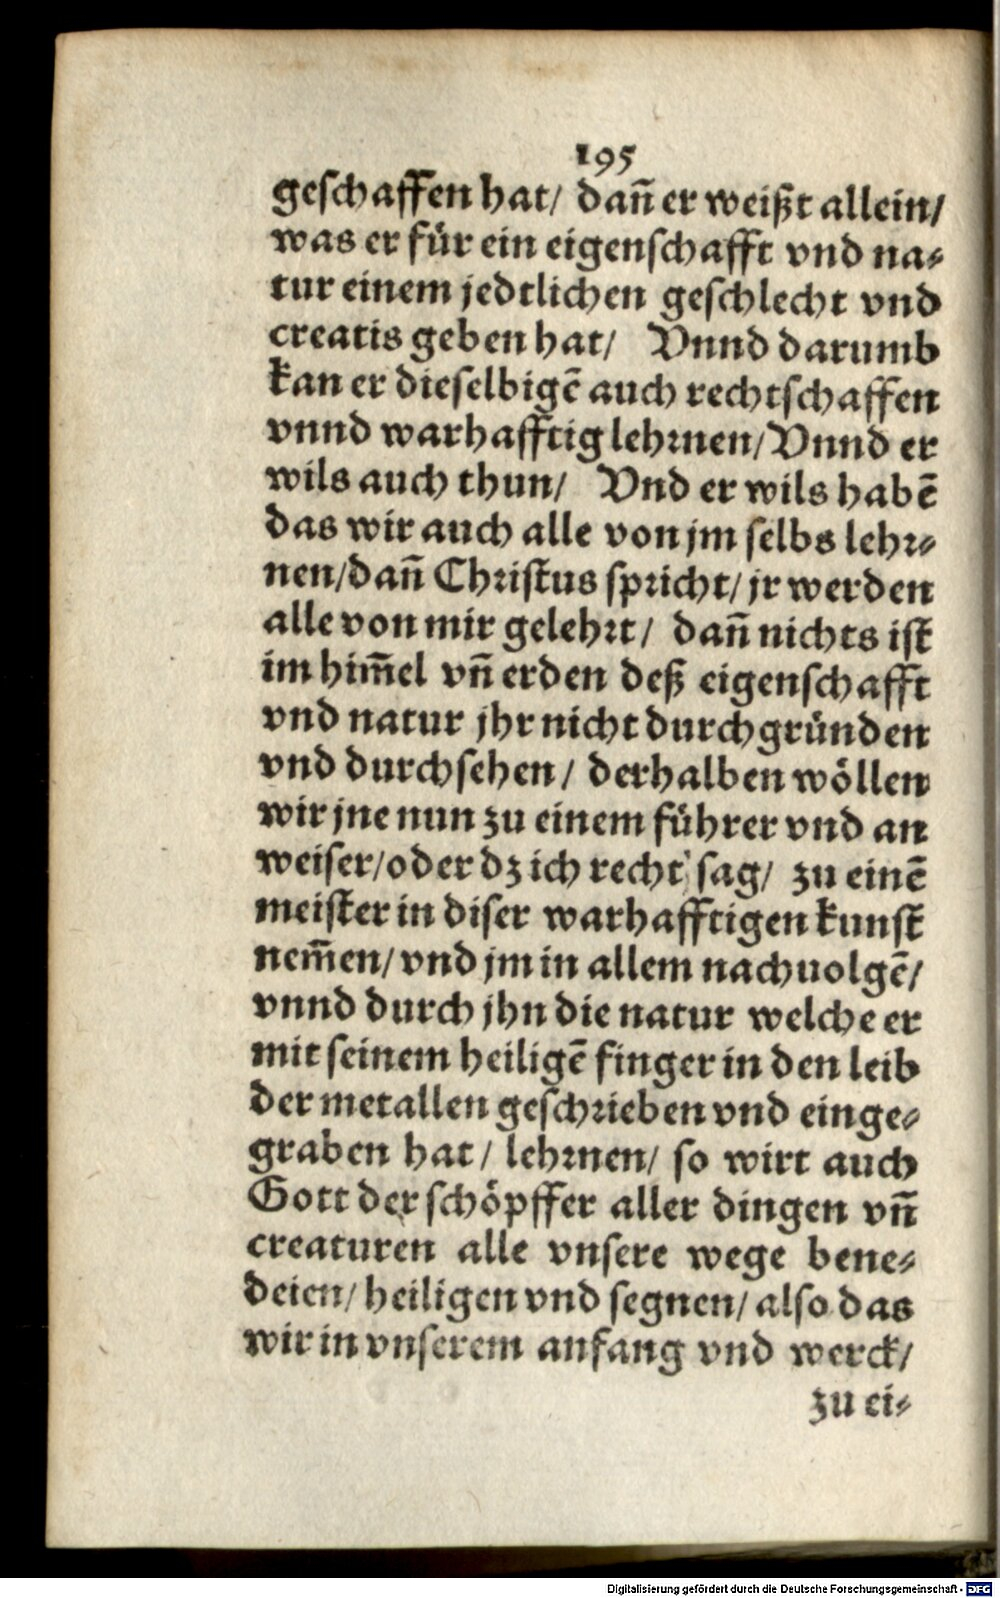 195
geschaffen hat/ dañ er weißt allein/
was er für ein eigenschafft vnd na-
tur einem jedtlichen geschlecht vnd
creatis geben hat/ Vnnd darumb
kan er dieselbigē auch rechtschaffen
vnnd warhafftig lehrnen/ Vnnd er
wils auch thun/ Vnd er wils habē
das wir auch alle von jm selbs lehr-
nen/ dañ Christus spricht/ jr werden
alle von mir gelehrt/ dañ nichts ist
im him̄el vñ erden deß eigenschafft
vnd natur jhr nicht durchgründen
vnd durchsehen/ derhalben wöllen
wir jne nun zu einem führer vnd an
weiser/ oder dz ich recht sag/ zu einē
meister in diser warhafftigen kunst
nem̄en/ vnd jm in allem nachuolgē/
vnnd durch jhn die natur welche er
mit seinem heiligē finger in den leib
der metallen geschrieben vnd einge-
graben hat/ lehrnen/ so wirt auch
Gott der schöpffer aller dingen vñ
creaturen alle vnsere wege bene-
deien/ heiligen vnd segnen/ also das
wir in vnserem anfang vnd werck/
zu ei-
Digitalisierung gefördert durch die Deutsche Forschungsgemeinschaft - DFG